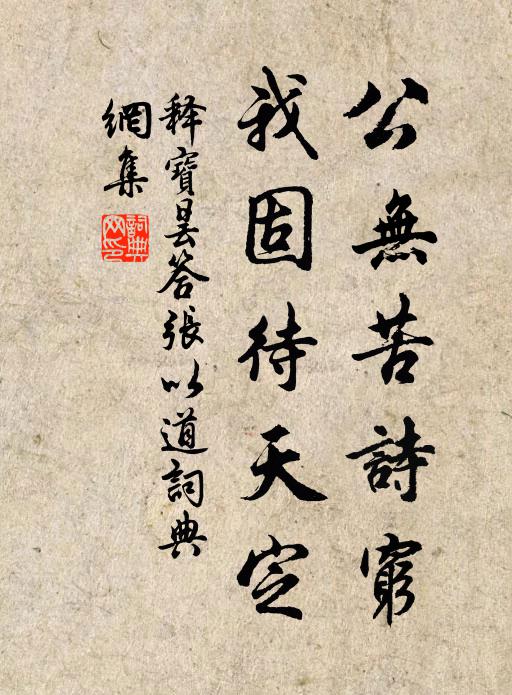 公無苦詩窮
我固待天定
釋寶曇答張以道詞典
網集
詞典網印